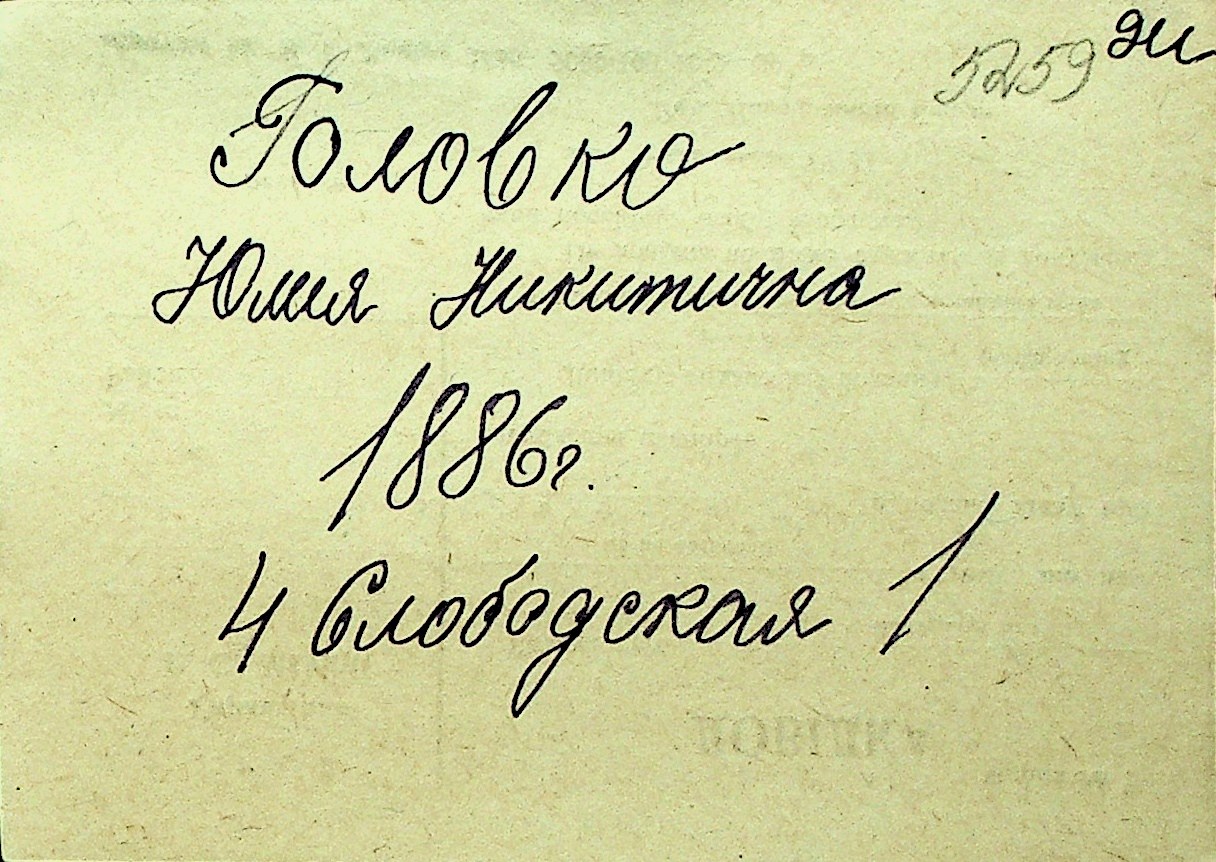 5259 эи
Головко
Юлия Никитична
1886г.
4 Слободская 1